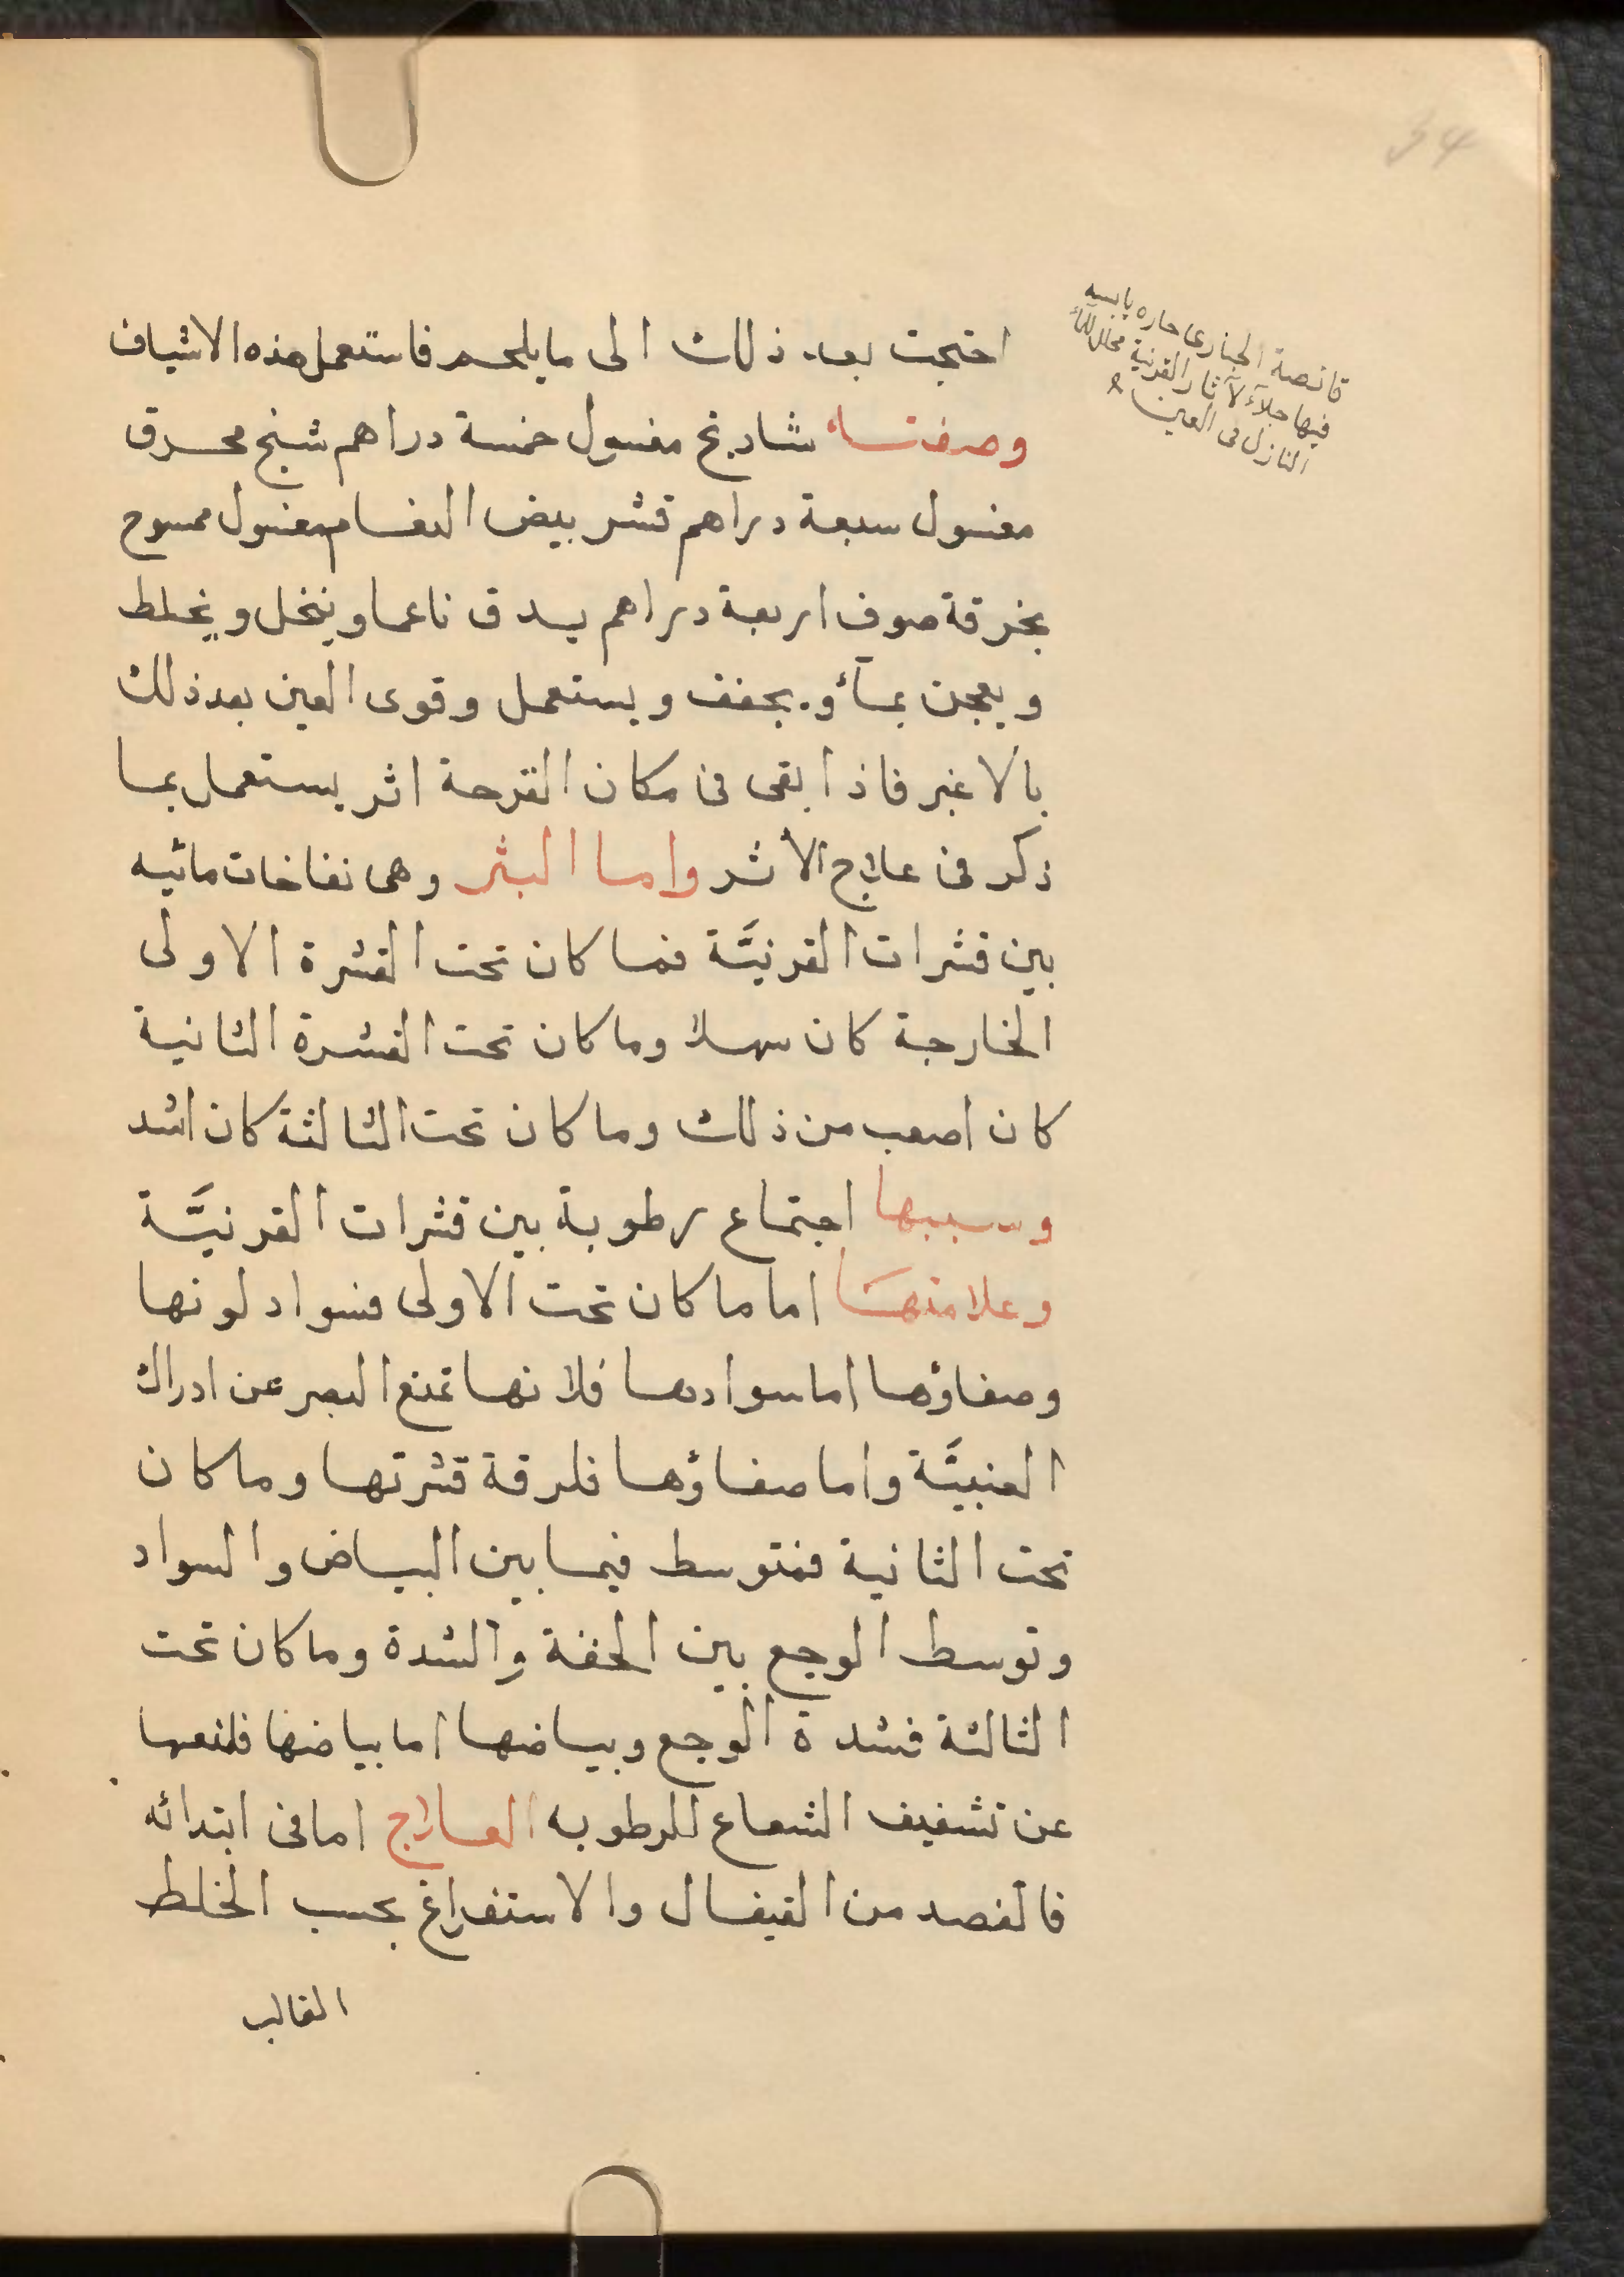 34
قانصة الحبارى حاره يابسه
فيها جلآء لآثار القرنية محلل للمآء
النازل فى العين
احتجت بعد ذلك الى ما يلحم فاستعمل هذه الاشياف
وصفتها شادنج مغسول خمسة دراهم شنج محرق
مغسول سبعة دراهم قشر بيض النعام مغسول ممسوح
بخرقة صوف اربعة دراهم يدق ناعما وينخل ويخلط
ويعجن بمآء ويجفف ويستعمل وقوى العين بعد ذلك
بالاغبر فاذا بقى فى مكان القرحة اثر يستعمل بما
ذكر فى علاج الاثر واما البثر وهى نفاخات مائيه
بين قشرات القرنيَّة فما كان تحت القشرة الاولى
الخارجة كان سهلا وما كان تحت القشرة الثانية
كان اصعب من ذلك وما كان تحت الثالثة كان اشد
وسببها اجتماع رطوبة بين قشرات القرنيَّة
وعلامتها اما ما كان تحت الاولى فسواد لونها
وصفاؤها اما سوادها فلانها تمنع البصر عن ادراك
العنبيَّة واما صفاؤها فلرقة قشرتها وما كان
تحت الثانية فمتوسط فيما بين البياض والسواد
وتوسط الوجع بين الخفة والشدة وما كان تحت
الثالثة فشدة الوجع وبياضها اما بياضها فلمنعها
عن تشفيف الشعاع للرطوبه العلاج اما فى ابتدائه
فالفصد من القيفال والاستفراغ بحسب الخلط
الغالب